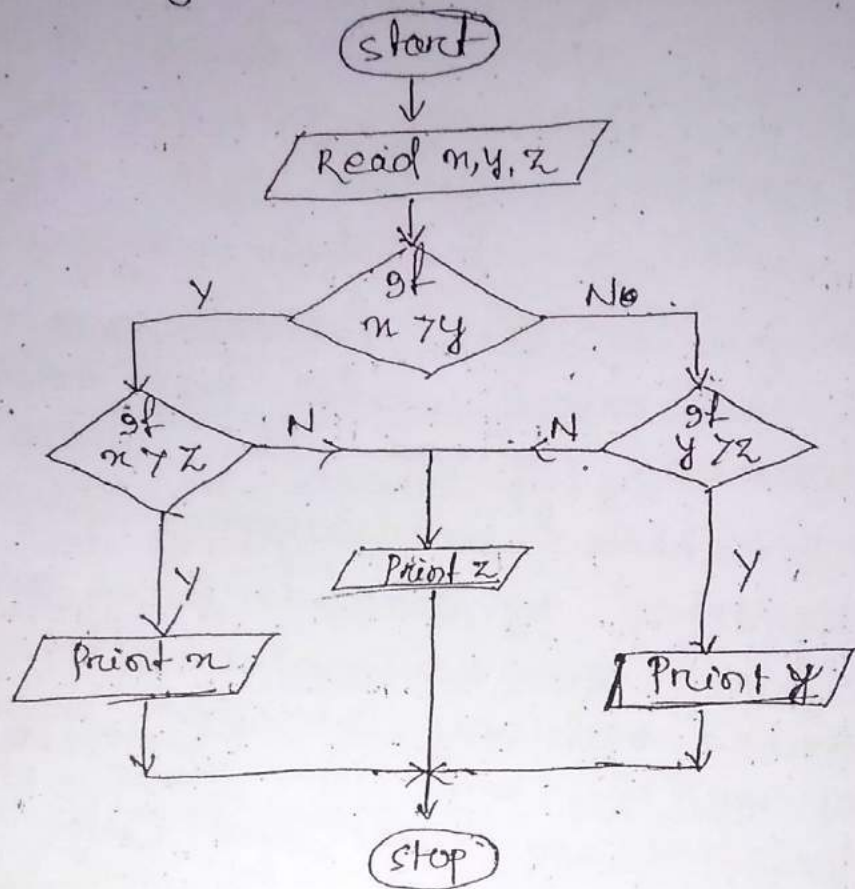 start
Read x, y, z
If
x > y
Y
No
If
x > z
N
N
If
y > z
Y
Print z
Y
Print x
Print y
stop